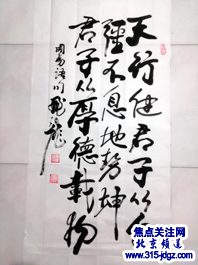 天行健君子以自
彊不息地势坤
君子以厚德载物
周易语句
焦点关注网
北京频道
www.315-jdgz.com